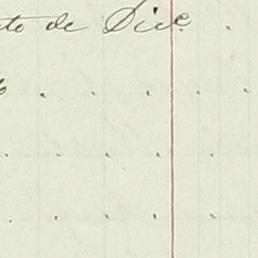 to de Dice